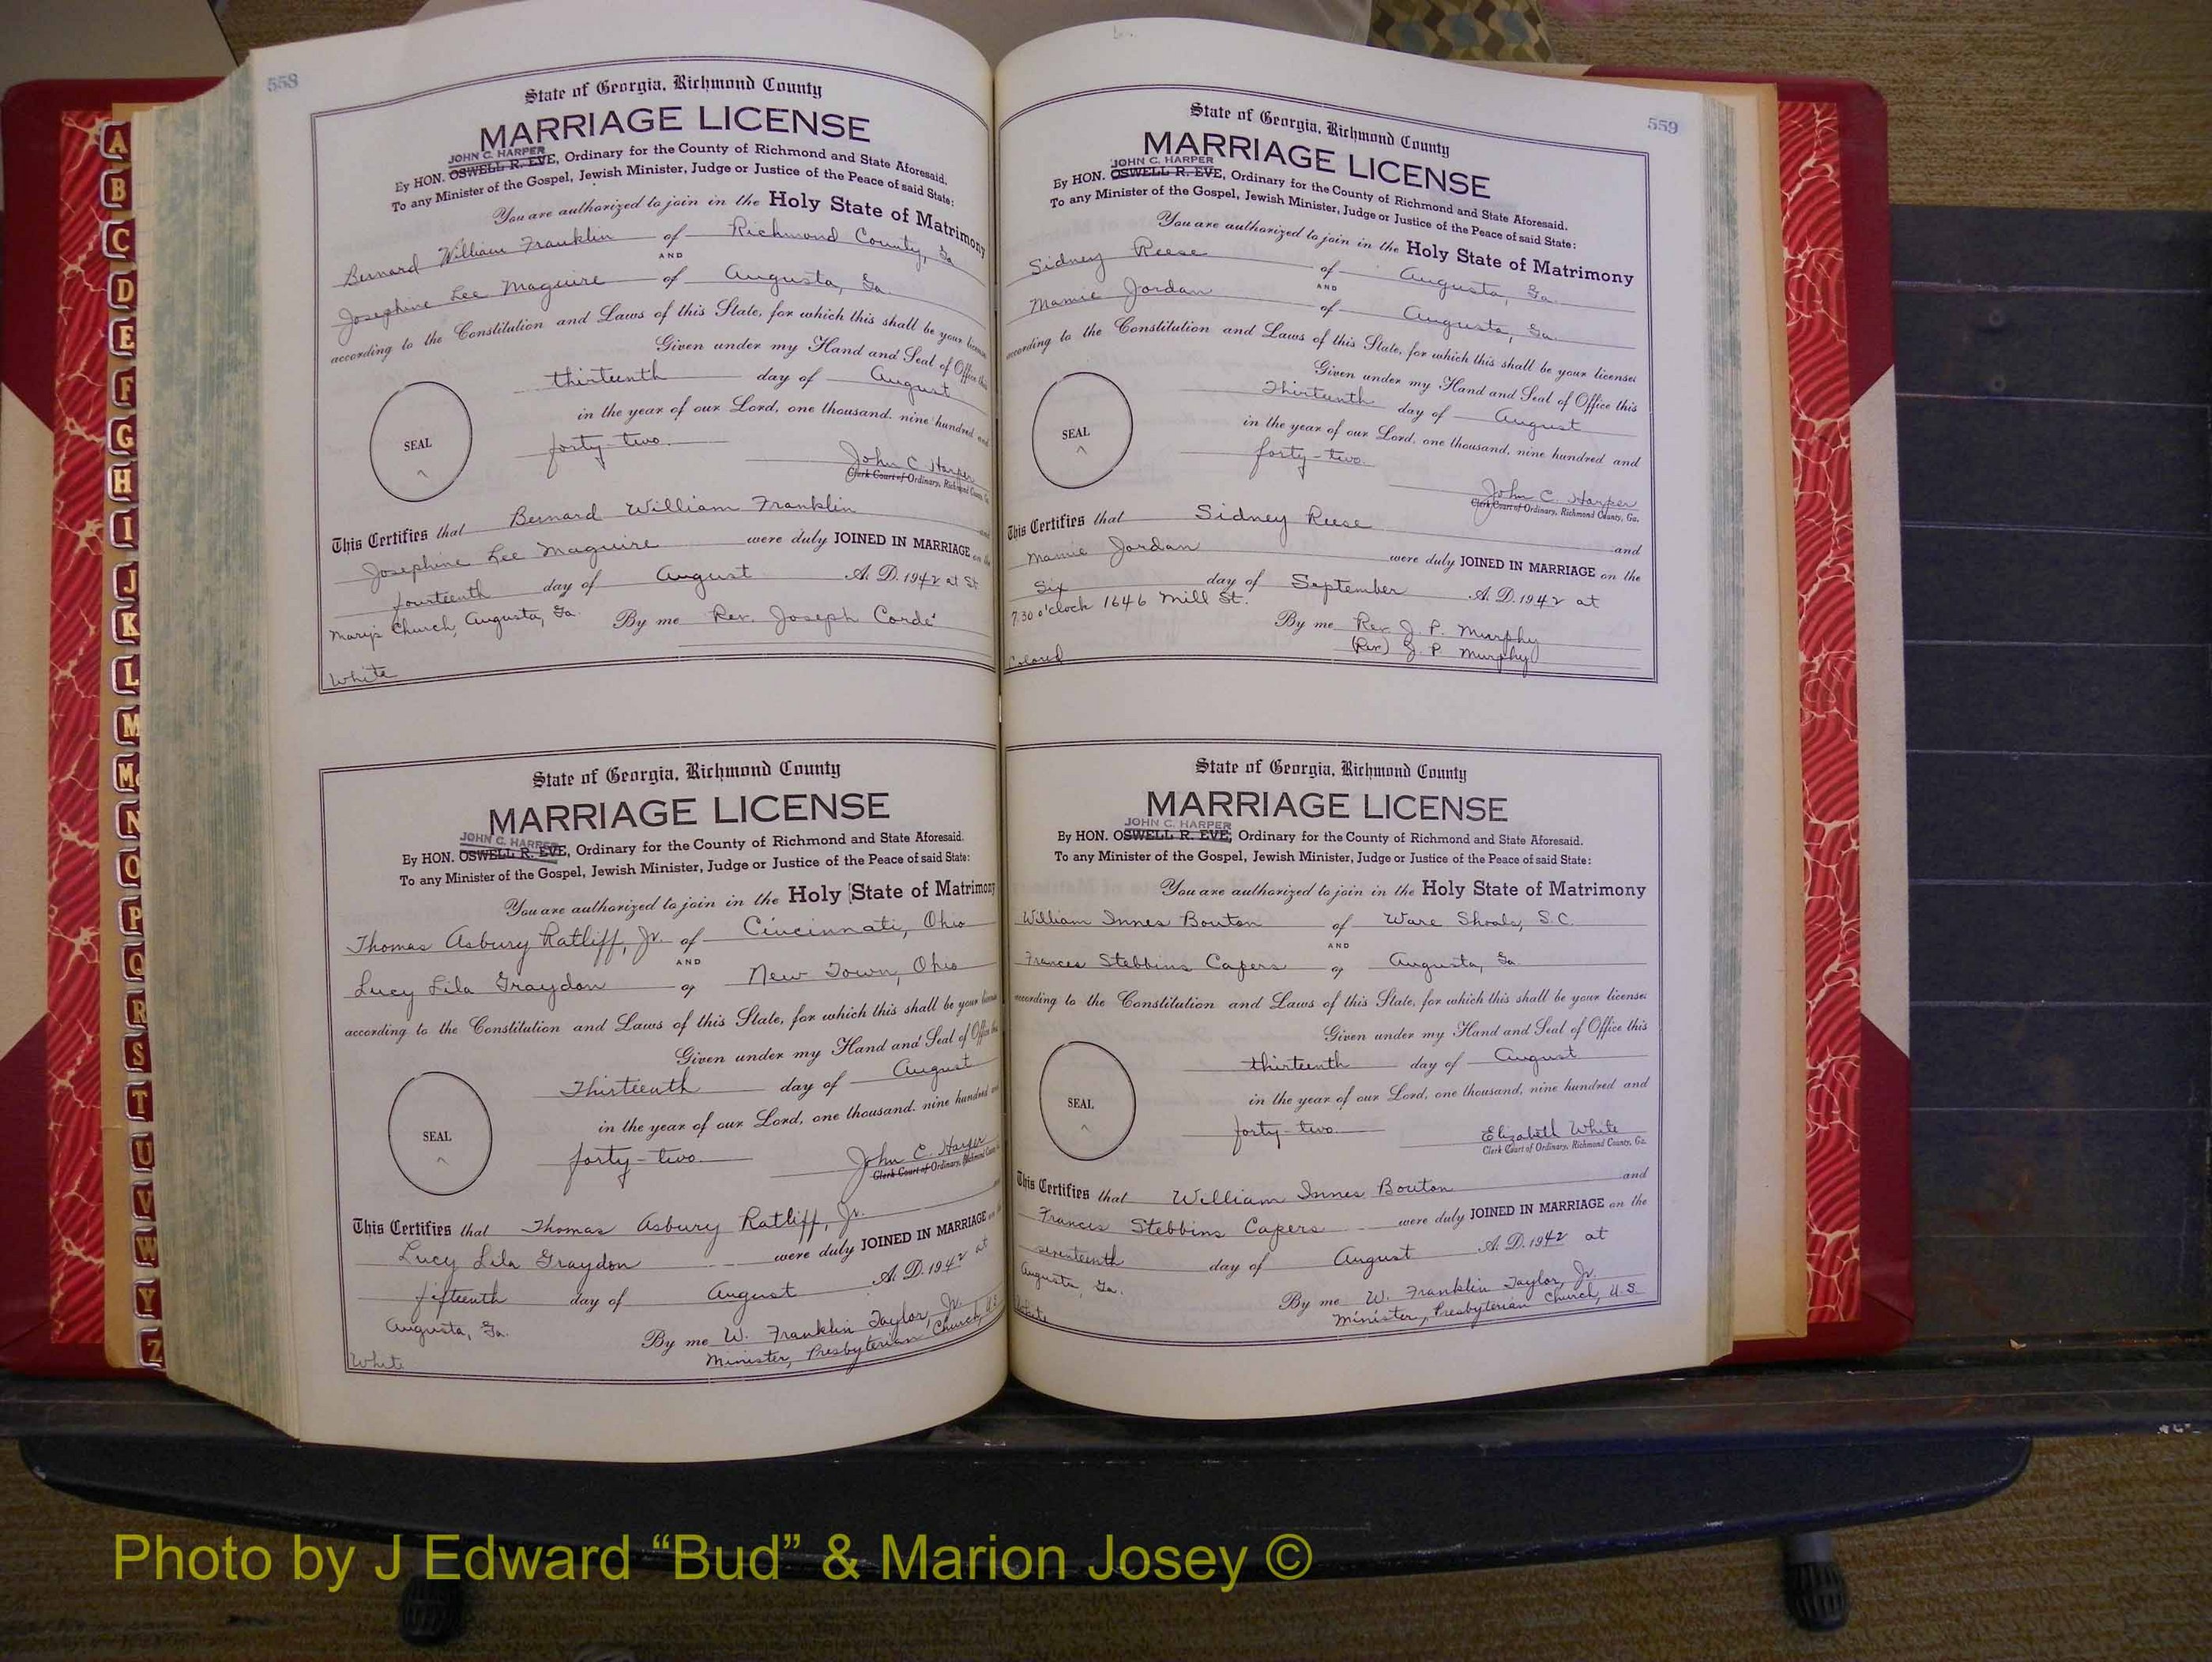 558
State of Georgia, Richmond County
MARRIAGE LICENSE
JOHN C. HARPER
By HON. OSWELL R. EVE, Ordinary for the County of Richmond and State Aforesaid.
To any Minister of the Gospel, Jewish Minister, Judge or Justice of the Peace of said State:
You are authorized to join in the Holy State of Matrimony
Bernard William Franklin of Richmond County, Ga
AND
Josephine Lee Maguire of Augusta, Ga.
according to the Constitution and Laws of this State, for which this shall be your license
Given under my Hand and Seal of Office this
thirteenth day of August
in the year of our Lord, one thousand, nine hundred and
SEAL
forty-two.
John C. Harper
Clerk Court of Ordinary, Richmond County, Ga.
This Certifies that Bernard William Franklin and
Josephine Lee Maguire were duly JOINED IN MARRIAGE on the
fourteenth day of August A. D. 1942 at St
Mary's Church, Augusta, Ga. By me Rev. Joseph Cordé
White
State of Georgia, Richmond County
MARRIAGE LICENSE
JOHN C. HARPER
By HON. OSWELL R. EVE, Ordinary for the County of Richmond and State Aforesaid.
To any Minister of the Gospel, Jewish Minister, Judge or Justice of the Peace of said State:
You are authorized to join in the Holy State of Matrimony
Thomas Asbury Ratliff, Jr. of Cincinnati, Ohio
AND
Lucy Lila Graydon of New Town, Ohio
according to the Constitution and Laws of this State, for which this shall be your license
Given under my Hand and Seal of Office this
Thirteenth day of August
in the year of our Lord, one thousand, nine hundred and
SEAL
forty-two.
John C. Harper
Clerk Court of Ordinary, Richmond County
This Certifies that Thomas Asbury Ratliff, Jr. and
Lucy Lila Graydon were duly JOINED IN MARRIAGE on
fifteenth day of August A. D. 1942 at
Augusta, Ga. By me W. Franklin Taylor, Jr.
Minister, Presbyterian Church, U.S.
White
559
State of Georgia, Richmond County
MARRIAGE LICENSE
JOHN C. HARPER
By HON. OSWELL R. EVE, Ordinary for the County of Richmond and State Aforesaid.
To any Minister of the Gospel, Jewish Minister, Judge or Justice of the Peace of said State:
You are authorized to join in the Holy State of Matrimony
Sidney Reese of Augusta, Ga.
AND
Mamie Jordan of Augusta, Ga.
according to the Constitution and Laws of this State, for which this shall be your license
Given under my Hand and Seal of Office this
Thirteenth day of August
in the year of our Lord, one thousand, nine hundred and
SEAL
forty-two.
John C. Harper
Clerk Court of Ordinary, Richmond County, Ga.
This Certifies that Sidney Reese and
Mamie Jordan were duly JOINED IN MARRIAGE on the
Six day of September A. D. 1942 at
7:30 o'clock 1646 Mill St. By me Rev. J. P. Murphy
(Rev) J. P. Murphy
Colored
State of Georgia, Richmond County
MARRIAGE LICENSE
JOHN C. HARPER
By HON. OSWELL R. EVE, Ordinary for the County of Richmond and State Aforesaid.
To any Minister of the Gospel, Jewish Minister, Judge or Justice of the Peace of said State:
You are authorized to join in the Holy State of Matrimony
William Innes Bouton of Ware Shoals, S.C.
AND
Frances Stebbins Capers of Augusta, Ga
according to the Constitution and Laws of this State, for which this shall be your license
Given under my Hand and Seal of Office this
thirteenth day of August
in the year of our Lord, one thousand, nine hundred and
SEAL
forty-two.
Elizabeth White
Clerk Court of Ordinary, Richmond County, Ga.
This Certifies that William Innes Bouton and
Frances Stebbins Capers were duly JOINED IN MARRIAGE on the
seventeenth day of August A. D. 1942 at
Augusta, Ga. By me W. Franklin Taylor, Jr.
Minister, Presbyterian Church, U.S.
White
A
B
C
D
E
F
G
H
I
J
K
L
M
Mc
N
O
P
Q
R
S
T
U
V
W
Y
Z
Photo by J Edward “Bud” & Marion Josey ©